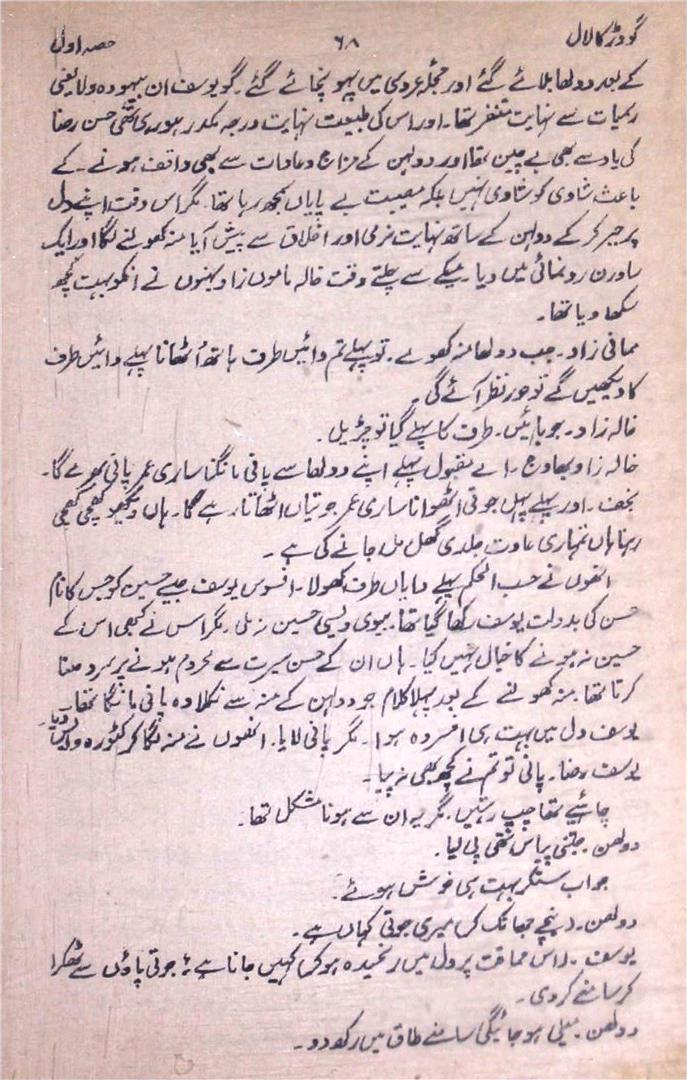 گودڑ کا لال ۶۸ حصہ اول
کے بعد دولھا بلائے گئے اور حجلہ عروسی میں پہونچائے گئے۔ گو یوسف ان بیہودہ ولایعنی
رسمیات سے نہایت متنفر تھا۔ اور اس کی طبیعت نہایت درجہ مکدر ہو رہی تھی حسن رضا
کی یاد سے بھی بے چین تھا اور دولہن کے مزاج و عادات سے بھی واقف ہونے کے
باعث شادی کو شادی نہیں بلکہ مصیبت بے پایاں سمجھ رہا تھا۔ مگر اس وقت اپنے دل
پر جبر کر کے دولہن کے ساتھ نہایت نرمی اور اخلاق سے پیش آیا منہ کھولنے لگا اور ایک
ساورن رونمائی میں دیا۔ میکے سے چلتے وقت خالہ ماموں زاد بہنوں نے انکو بہت کچھ
سکھا دیا تھا۔
ممانی زاد۔ جب دولھا منہ کھولے۔ تو پہلے تم دائیں طرف ہاتھ اُٹھانا پہلے دائیں طرف
کا دیکھیں گے تو حور نظر آئے گی۔
خالہ زاد۔ جو بائیں۔ طرف کا پہلے گیا تو چڑیل۔
خالہ زاد بھاوج۔ اے مقبول پہلے اپنے دولھا سے پانی مانگنا ساری عمر پانی بھرے گا۔
نجف۔ اور پہلے پہل جوتی اٹھوانا ساری عمر جوتیاں اٹھاتا رہے گا۔ ہاں دیکھو کھچی کھچی
رہنا ہاں تمہاری عادت جلدی گھل مل جانے کی ہے۔
انھوں نے حسب الحکم پہلے دایاں طرف کھولا۔ افسوس یوسف جیسے حسین کو جس کا نام
حسن کی بدولت یوسف رکھا گیا تھا۔ بیوی ویسی حسین نہ ملی۔ مگر اس نے کبھی اس کے
حسین نہ ہونے کا خیال نہیں کیا۔ ہاں ان کے حسن سیرت سے محروم ہونے پر سرد دھنا
کرتا تھا۔ منہ کھولنے کے بعد پہلا کلام جو دولہن کے منہ سے نکلا وہ پانی مانگا تھا۔
یوسف دل میں بہت ہی افسردہ ہوا۔ مگر پانی لایا۔ انھوں نے منہ لگا کر کٹورہ واپس دیا۔
یوسف رضا۔ پانی تو تم نے کچھ بھی نہ پیا۔
چاہیے تھا چپ رہتیں۔ مگر یہ ان سے ہونا مشکل تھا۔
دولھن۔ جتنی پیاس تھی پی لیا۔
جواب سنکر بہت ہی خوش ہوئے۔
دولھن۔ (نیچے جھانک کر) میری جوتی کہاں ہے۔
یوسف۔ (اس حماقت پر دل میں رنجیدہ ہو کر) کہیں جانا ہے؟ جوتی پاؤں سے ٹھکرا
کر سامنے کر دی۔
دولھن۔ میلی ہو جائیگی سامنے طاق میں رکھ دو۔